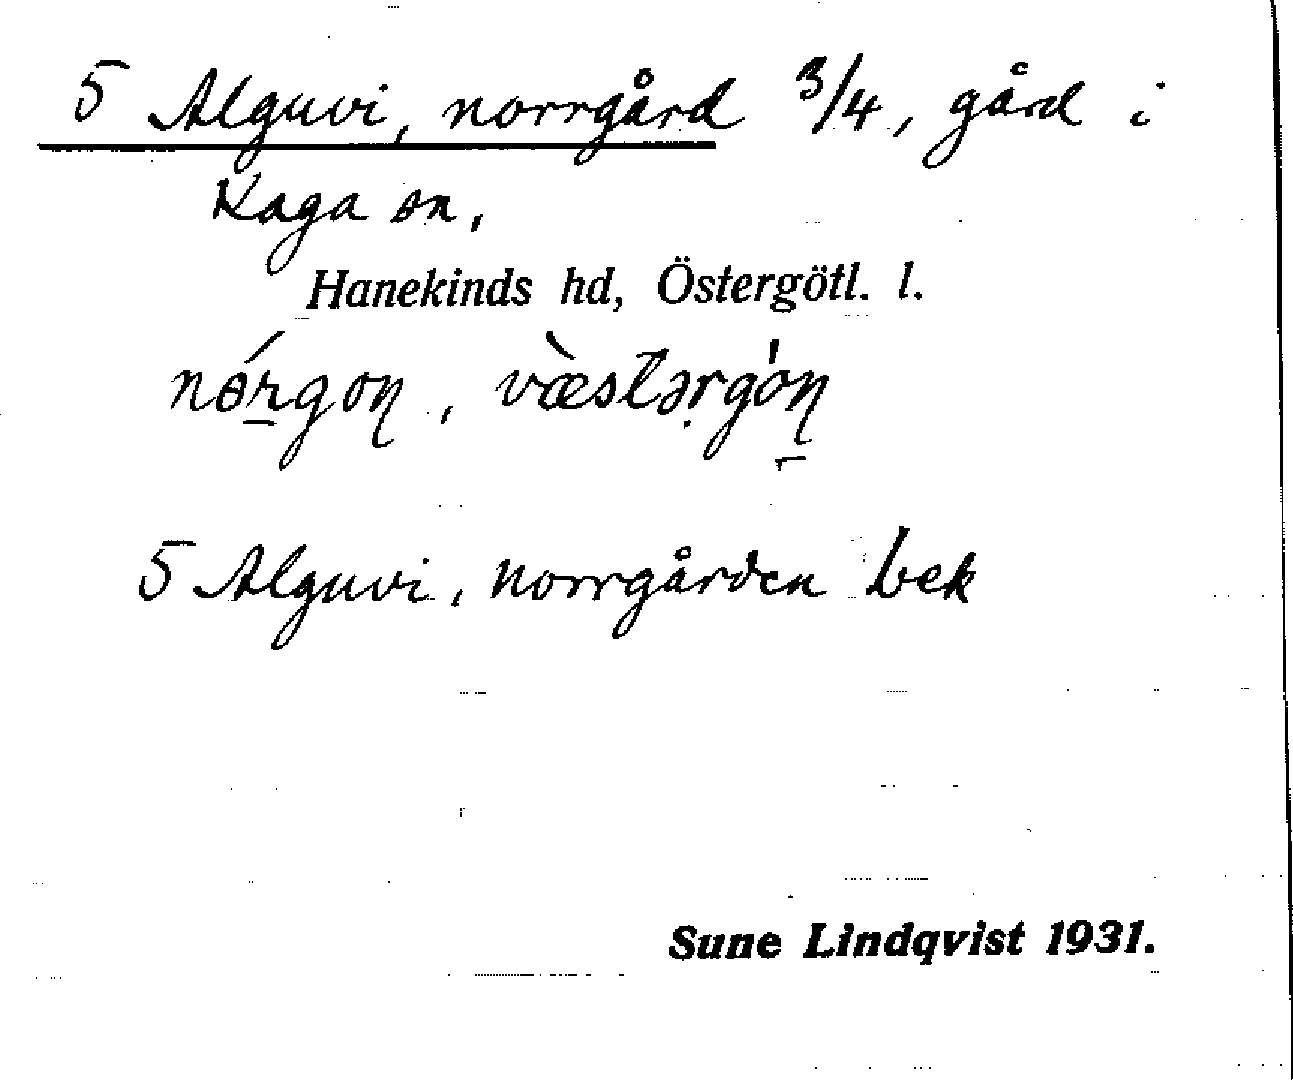 5 Alguvi, norrgård 3/4, gård i
Kaga sn,
Hanekinds hd, Östergötl. l.
nǿrgoɳ, væ̀stərgoɳ
5 Alguvi, Norrgården bek
Sune Lindqvist 1931.